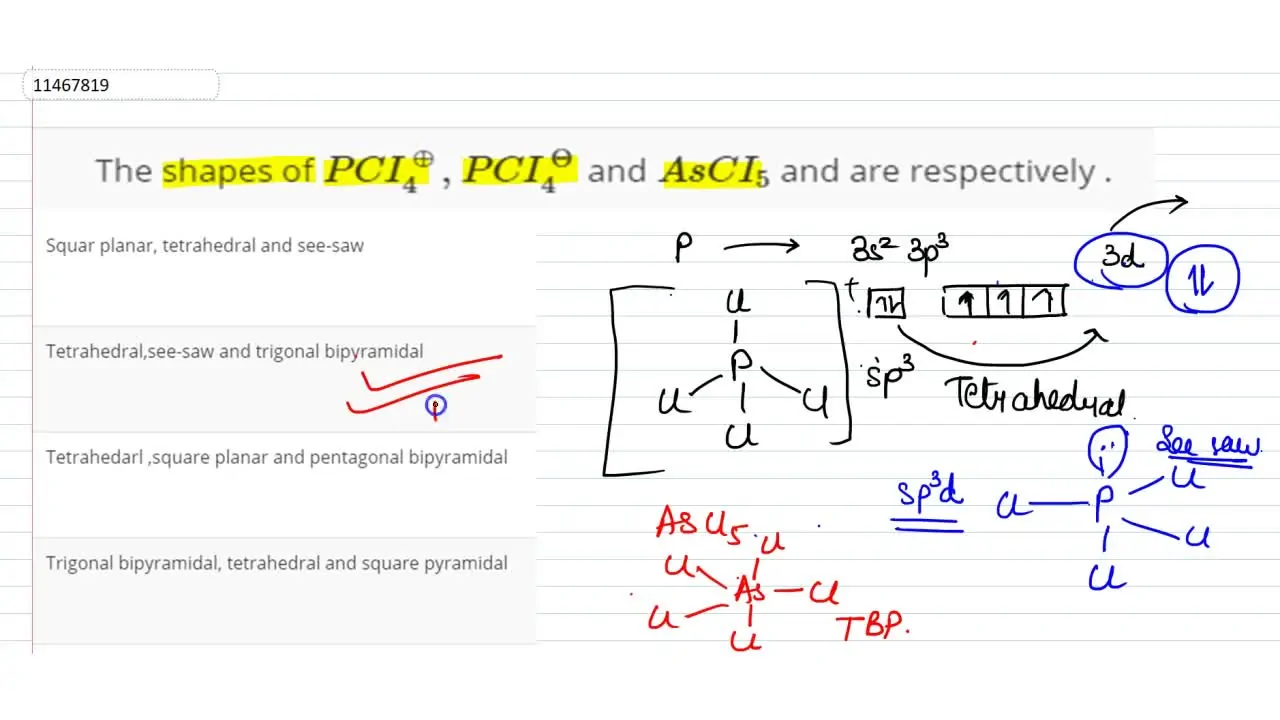 11467819
The shapes of PCI₄⊕, PCI₄⊖ and AsCI₅ and are respectively .
Squar planar, tetrahedral and see-saw
Tetrahedral,see-saw and trigonal bipyramidal
Tetrahedarl ,square planar and pentagonal bipyramidal
Trigonal bipyramidal, tetrahedral and square pyramidal
P → 3s² 3p³ 3d
Cl
P
Cl Cl
Cl
+
sp³
Tetrahedral
See saw
sp³d
Cl P Cl
Cl
Cl
AsCl₅
Cl
Cl As Cl
Cl
Cl
TBP.